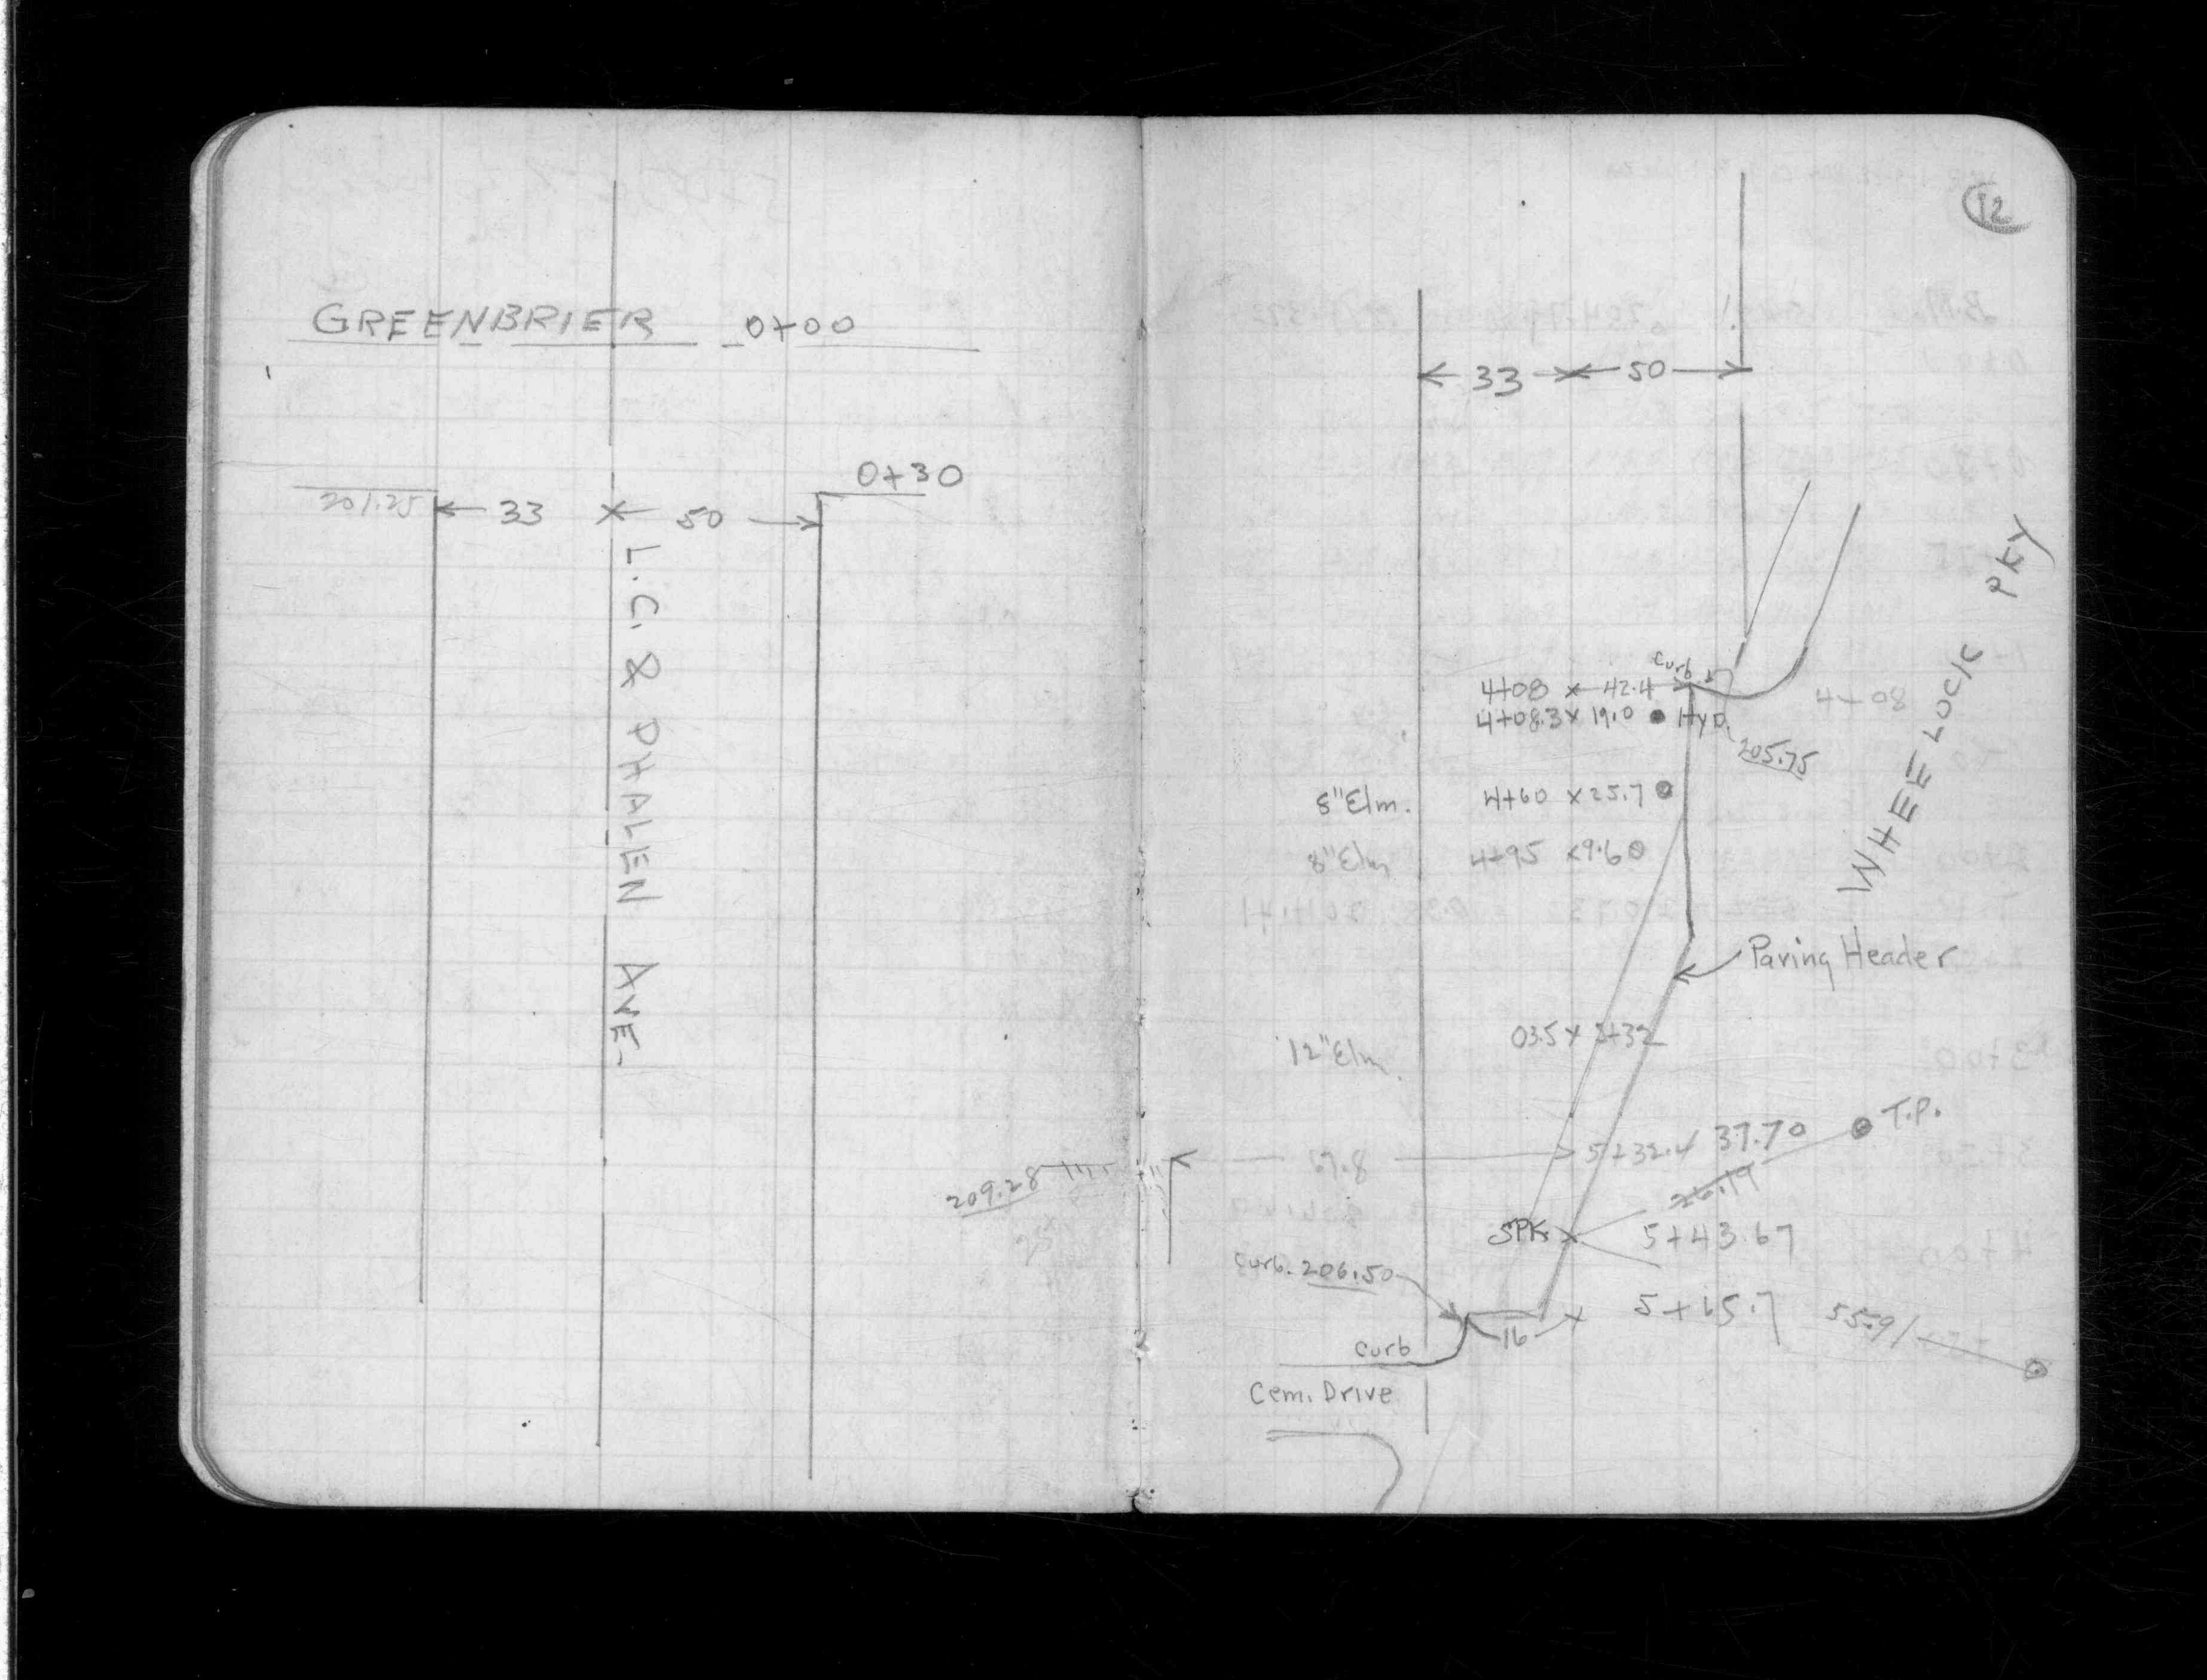 GREENBRIER 0+00
0+30
201.25 33 50
L.C. & PHALEN AVE.
12
33 50
WHEELOCK PKY
curb
4+08 x 42.4
4+08
4+08.3 x 19.0 HYD.
205.75
8"Elm. 4+60 x 25.7
8"Elm 4+95 x 9.6
Paving Header
12"Elm. 03.5 x 5+32
T.P.
67.8 5+32.4 37.70
209.28
26.19
SPK 5+43.67
curb. 206.50
16 5+65.7 55.91
curb
Cem. Drive